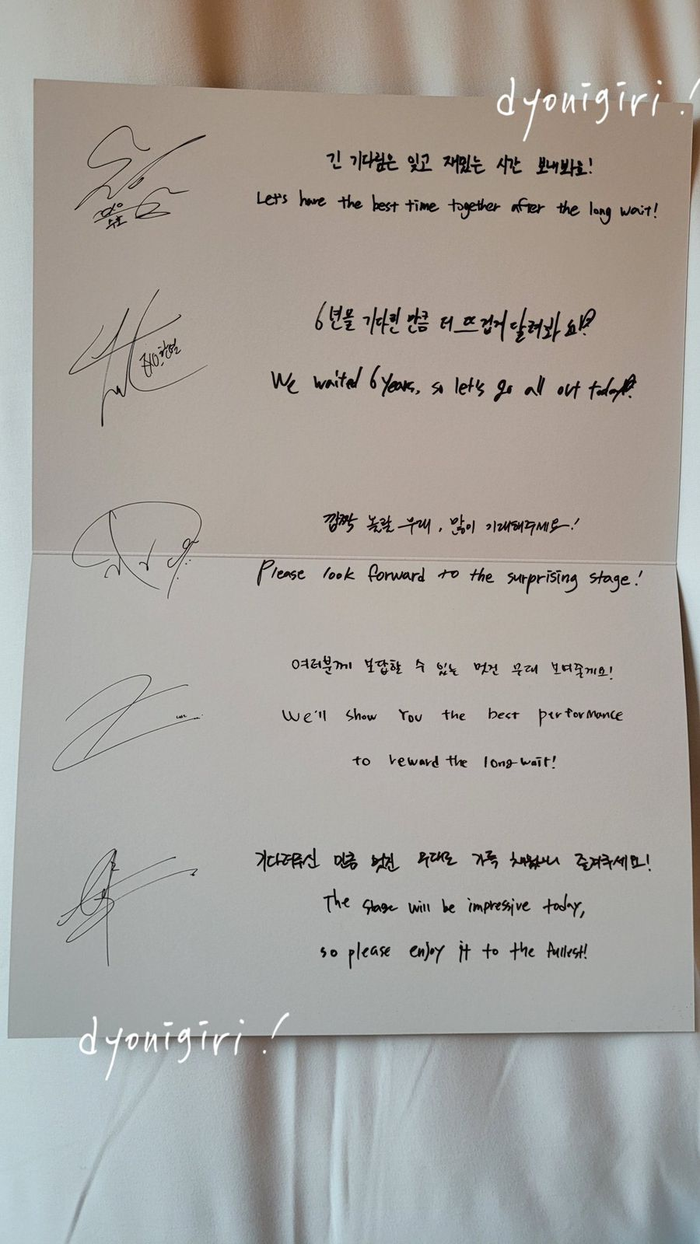 dyonigiri!
긴 기다림은 잊고 재밌는 시간 보내봐요!
Let's have the best time together after the long wait!
수호
6년을 기다린 만큼 더 뜨겁게 달려봐요!?
We waited 6 years, so let's go all out today?
깜짝 놀랄 무대, 많이 기대해주세요!
Please look forward to the surprising stage!
여러분께 보답할 수 있는 멋진 무대 보여줄게요!
We'll show You the best performance
to reward the long wait!
기다려주신 만큼 멋진 무대로 가득 채웠으니 즐겨주세요!
The stage will be impressive today,
so please enjoy it to the fullest!
dyonigiri!